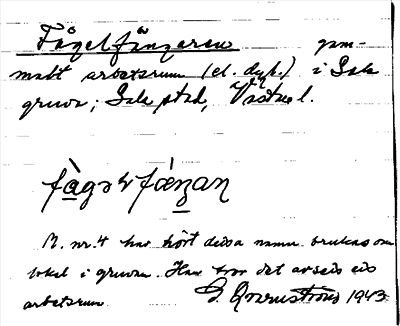 Fågelfängaren gam-
malt arbetsrum (el. dyl.) i Sala
gruva; Sala stad, Västml.
fågəlfäŋaɳ
B. nr. 4 har hört dessa namn brukas om
lokal i gruvan. Han tror det avses ett
arbetsrum. G. 1943.